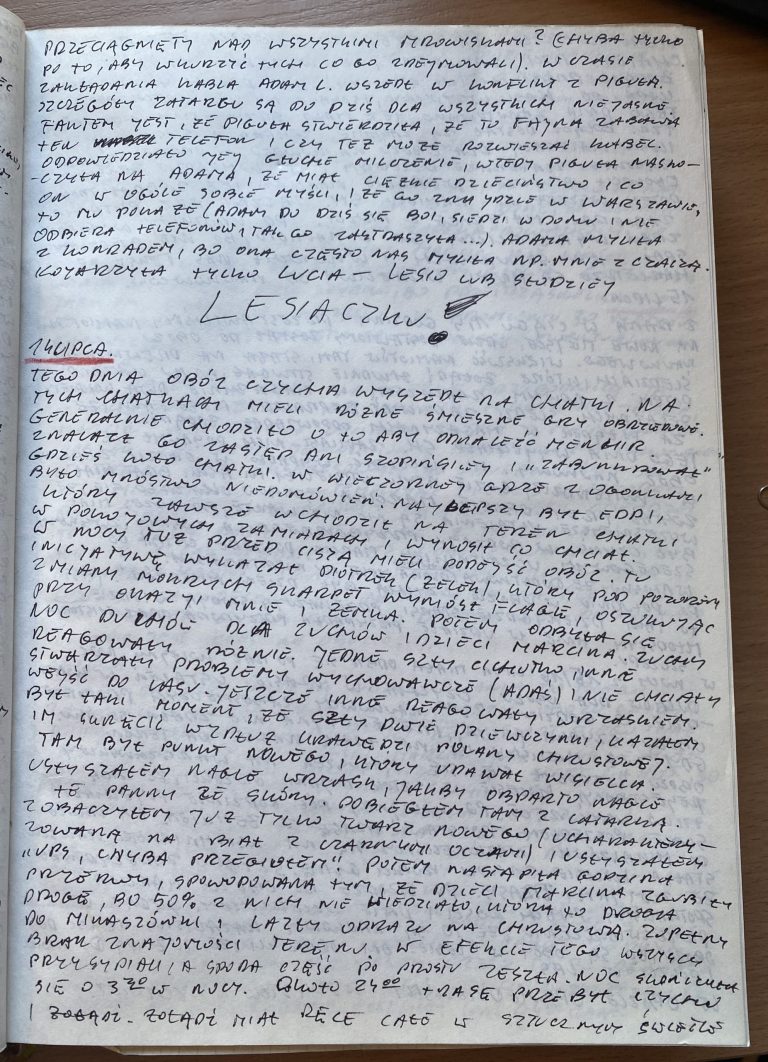 PRZECIĄGNIĘTY NAD WSZYSTKIMI MROWISKAMI? (CHYBA TYLKO
PO TO, ABY WKURZYĆ TYCH CO GO ZDEJMOWALI). W CZASIE
ZAKŁADANIA KABLA ADAM L. WSZEDŁ W KONFLIKT Z PIGUŁĄ.
SZCZEGÓŁY ZATARGU SĄ DO DZIŚ DLA WSZYSTKICH NIEJASNE
FAKTEM JEST, ŻE PIGUŁA STWIERDZIŁA, ŻE TO FAJNA ZABAWA
TEN TELEFON I CZY TEŻ MOŻE ROZWIESZAĆ KABEL.
ODPOWIEDZIAŁO JEJ GŁUCHE MILCZENIE, WTEDY PIGUŁA NASKO-
-CZYŁA NA ADAMA, ŻE MIAŁ CIĘŻKIE DZIECIŃSTWO I CO
ON W OGÓLE SOBIE MYŚLI, I ŻE GO ZNAJDZIE W WARSZAWIE,
TO MU POKAŻE (ADAM DO DZIŚ SIĘ BOI, SIEDZI W DOMU I NIE
ODBIERA TELEFONÓW, TAK GO ZASTRASZYŁA...). ADAMA MYLIŁA
Z KONRADEM, BO ONA CZĘSTO NAS MYLIŁA NP. MNIE Z CZACZĄ.
KOJARZYŁA TYLKO LUCIA - LESIO LUB SŁODZIEJ
LESIACZKU!
14 LIPCA.
TEGO DNIA OBÓZ CZYCHA WYSZEDŁ NA CHATKI. NA
TYCH CHATKACH MIELI RÓŻNE ŚMIESZNE GRY OBRZĘDOWE.
GENERALNIE CHODZIŁO O TO ABY ODNALEŹĆ MENHIR.
ZNALAZŁ GO ZASTĘP ANI SZOPIŃSKIEJ I „ZABUNKROWAŁ"
GDZIEŚ KOŁO CHATKI. W WIECZORNEJ GRZE Z OGONKAMI
BYŁO MNÓSTWO NIEDOMÓWIEŃ. NAJLEPSZY BYŁ EDDI,
KTÓRY ZAWSZE WCHODZIŁ NA TEREN CHATKI
W POKOJOWYCH ZAMIARACH I WYNOSIŁ CO CHCIAŁ.
W NOCY TUŻ PRZED CISZĄ MIELI PODEJŚĆ OBÓZ. TU
INICJATYWĘ WYKAZAŁ PIOTREK (ZELEK), KTÓRY POD POZOREM
ZMIANY MOKRYCH SKARPET WYNIÓSŁ FLAGĘ, OSZUKUJĄC
PRZY OKAZJI MNIE I ZEMKA. POTEM ODBYŁA SIĘ
NOC DUCHÓW DLA ZUCHÓW I DZIECI MARCINA. ZUCHY
REAGOWAŁY RÓŻNIE. JEDNE SZŁY CICHUTKO, INNE
STWARZAŁY PROBLEMY WYCHOWAWCZE (ADAŚ) I NIE CHCIAŁY
WEJŚĆ DO LASU. JESZCZE INNE REAGOWAŁY WRZASKIEM.
BYŁ TAKI MOMENT, ŻE SZŁY DWIE DZIEWCZYNKI, KAZAŁEM
IM SKRĘCIĆ WZDŁUŻ KRAWĘDZI POLANY CHRUSTOWEJ.
TAM BYŁ PUNKT NOWEGO, KTÓRY UDAWAŁ WISIELCA.
USŁYSZAŁEM NAGLE WRZASK, JAKBY OBDARTO NAGLE
TE PANNY ZE SKÓRY. DOBIEGŁEM TAM Z LATARKĄ.
ZOBACZYŁEM JUŻ TYLKO TWARZ NOWEGO (UCHARAKTERY-
ZOWANĄ NA BIAŁ Z CZARNYMI OCZAMI) I USŁYSZAŁEM
„UPS, CHYBA PRZEGIĄŁEM". POTEM NASTĄPIŁA GODZINA
PRZERWY, SPOWODOWANA TYM, ŻE DZIECI MARCINA ZGUBIŁY
DROGĘ, BO 50% Z NICH NIE WIEDZIAŁO, KTÓRA TO DROGA
DO MIKASZÓWKI I LAZŁY ODRAZU NA CHRUSTOWĄ. ZUPEŁNY
BRAK ZNAJOMOŚCI TERENU. W EFEKCIE TEGO WSZYSCY
PRZYSYPIALI, A SPORA CZĘŚĆ PO PROSTU ZESZŁA. NOC SKOŃCZYŁA
SIĘ O 3³⁰ W NOCY. OKOŁO 24⁰⁰ TRASĘ PRZEBYŁ CZYCHU
I ŻOŁĄDŹ. ŻOŁĄDŹ MIAŁ RĘCE CAŁE W SZTUCZNYM ŚWIETLE